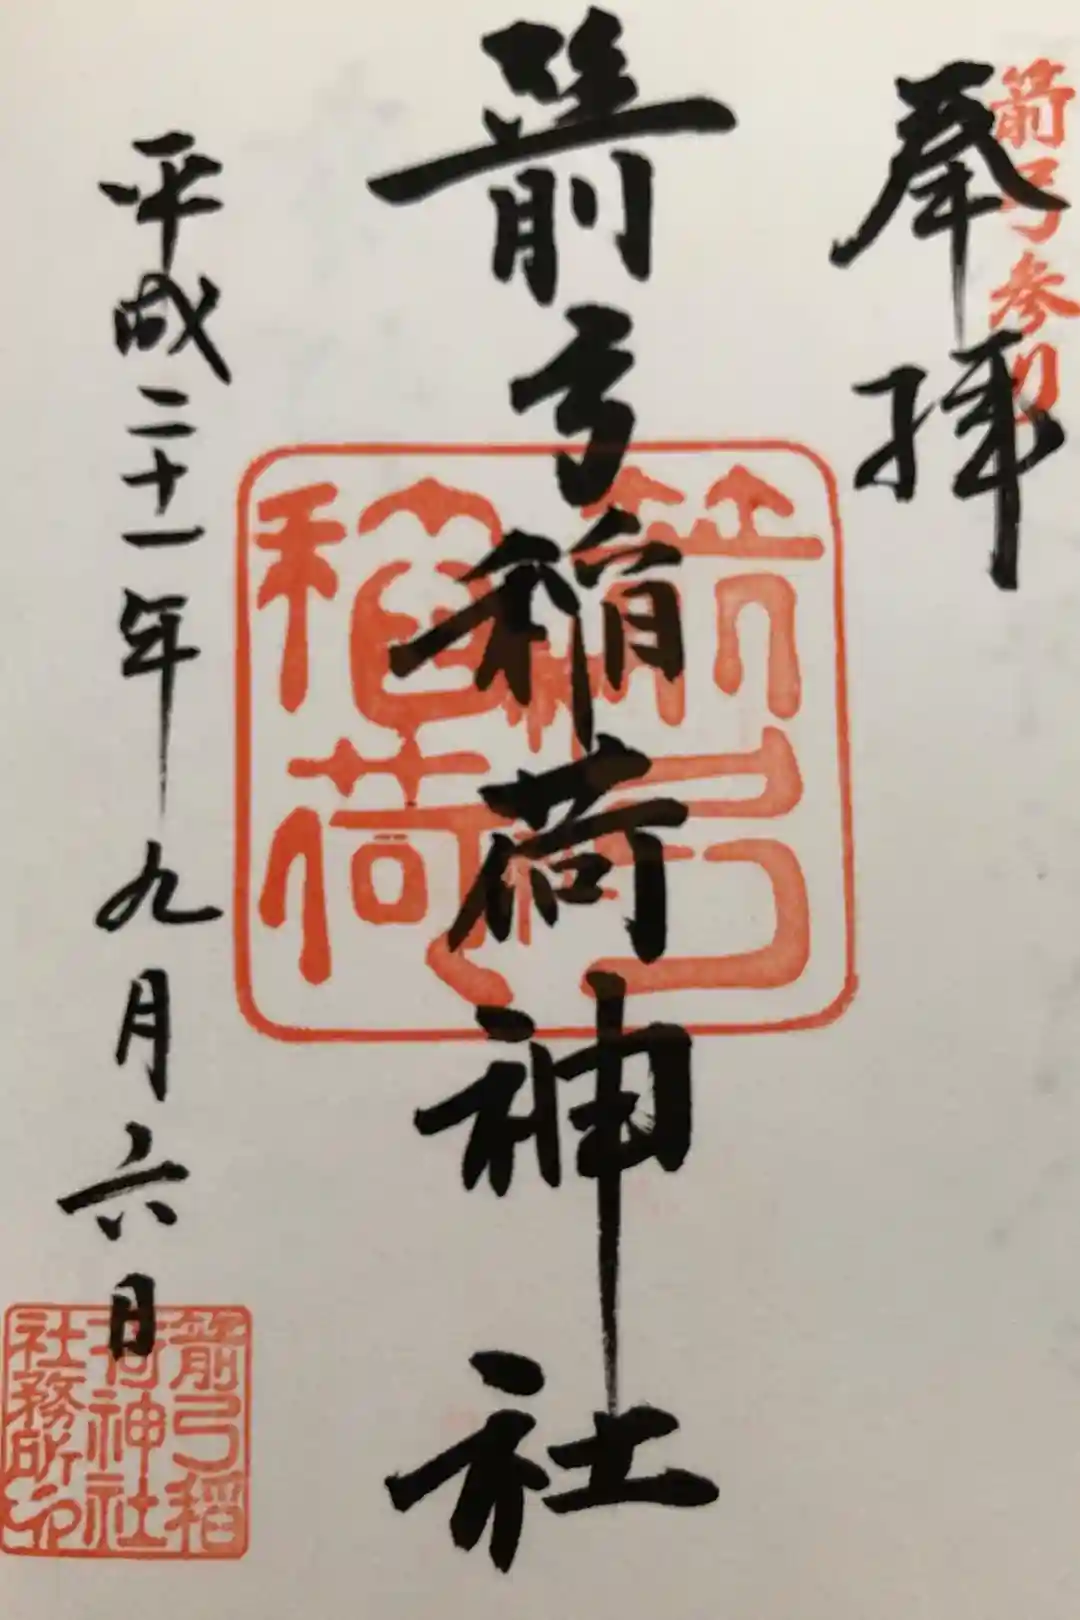 箭弓参り
奉拝
箭弓稲荷神社
箭弓
稲荷
平成二十一年九月六日
箭弓稲
荷神社
社務所印